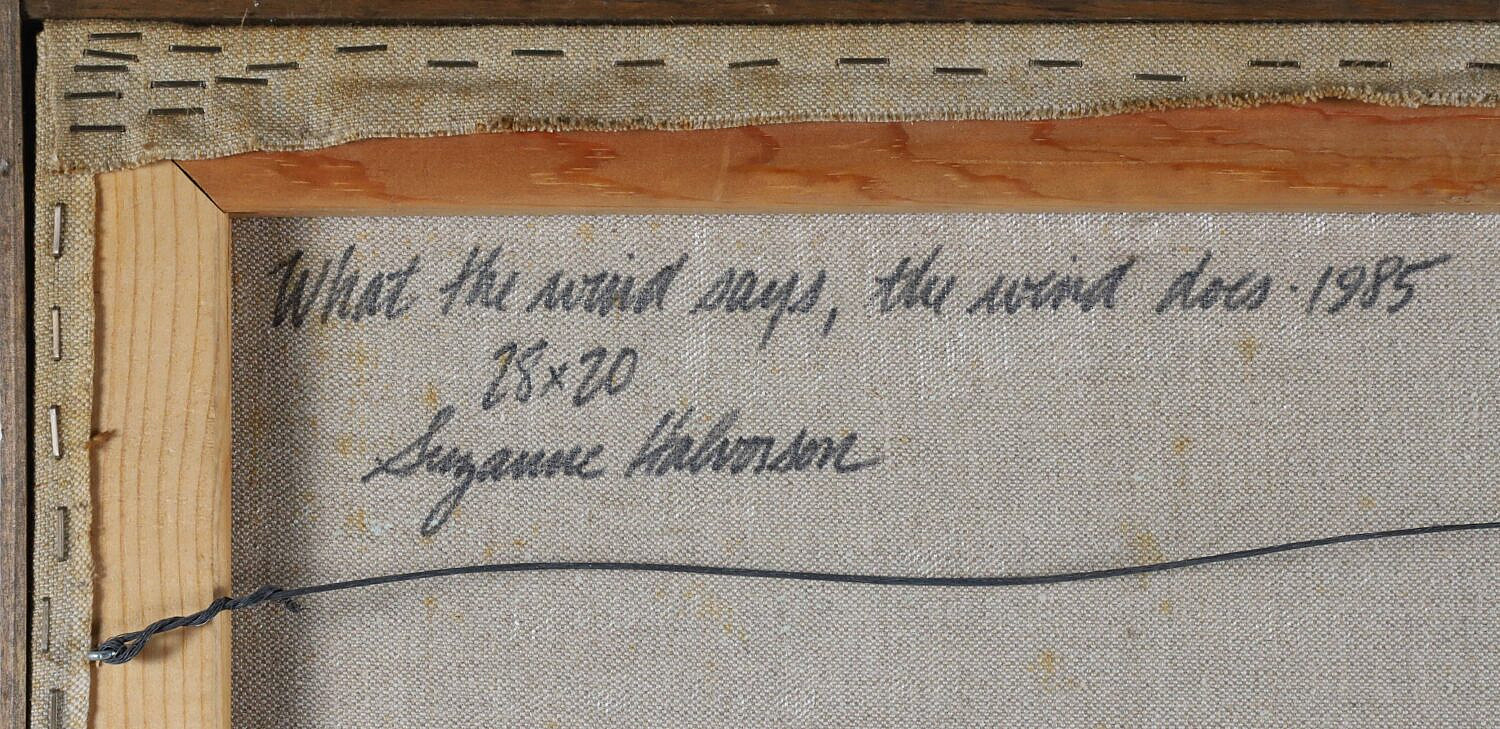 What the wind says, the wind does · 1985
28x20
Suzanne Halvorson